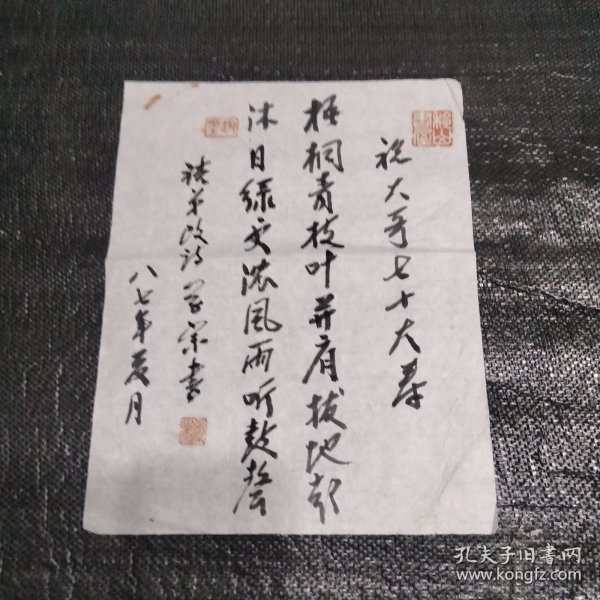 祝大哥七十大寿
梧桐青枝叶并肩拔地起
沐日绿更浓风雨听鼓声
弟改诗 学荣书
八七年夏月
孔夫子旧书网
www.kongfz.com